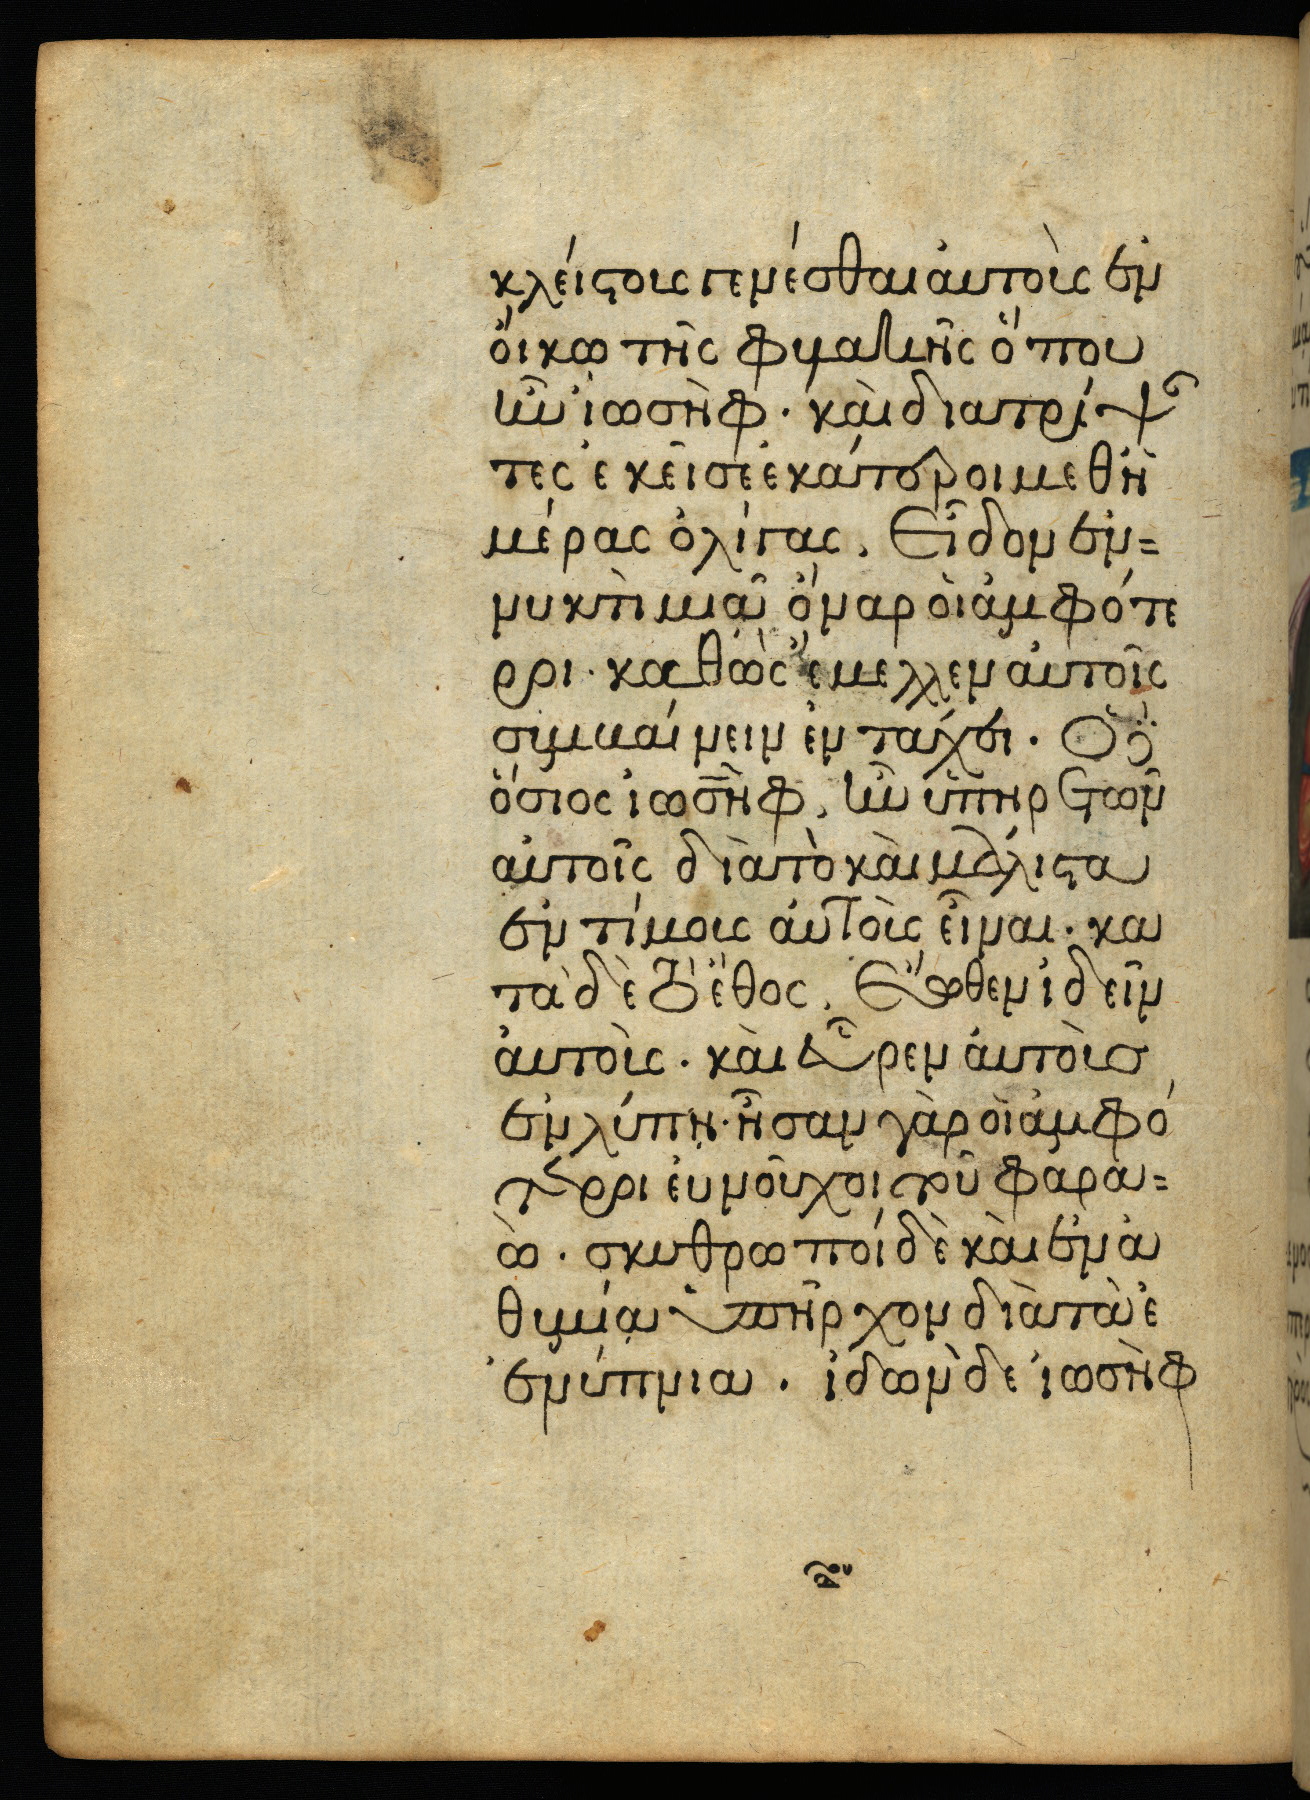 κλείστοις γενέσθαι αὐτοὶς ἐν
ὄικω τῆς φυλακῆς ὅπου
ἦν ἰωσὴφ. καὶ διατρίψαν
τες ἐκεῖσε ἑκάτεροι μεθ' ἡ
μέρας ὀλίγας. Εἶδον ἐν=
νυκτὶ μιᾶ ὄναρ ὁι ἀμφότε
ροι. καθὼς ἔμελλεν αὐτοῖς
συμβαίνειν ἐν τάχει. Ὁ δὲ
ὅσιος ἰωσὴφ, ἦν ὑπηρετῶν
αὐτοῖς διὰ τὸ καὶ μάλιστα
ἐν τίμοις αὐτοὶς εἶναι. κα
τὰ δὲ τὸ ἔθος, Ἦλθεν ἰδεῖν
ἀυτοὶς. καὶ εὗρεν ἀυτοὶς
ἐν λύπῃ. ἦσαν γὰρ οἱ ἀμφό
τεροι ἐυνοῦχοι τοῦ φαρα=
ὼ. σκυθρωποί δὲ καὶ ἐν ἀ
θυμία ὑπῆρχον διὰ τὰ ἐ
ἐνύπνια. ἰδὼν δε ἰωσὴφ